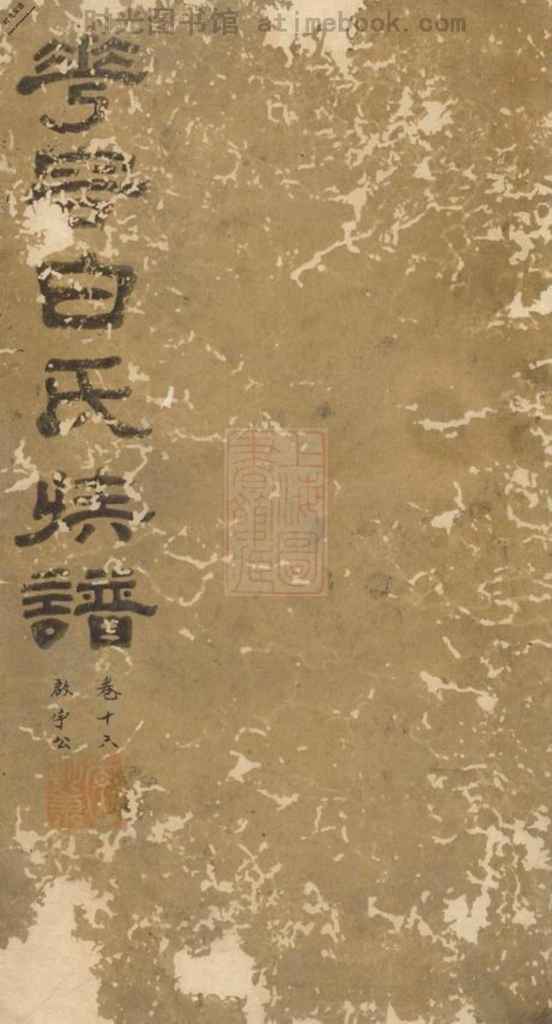 时光图书馆 atimebook.com
華白氏族譜
卷十六
啟公
上海圖
書館藏